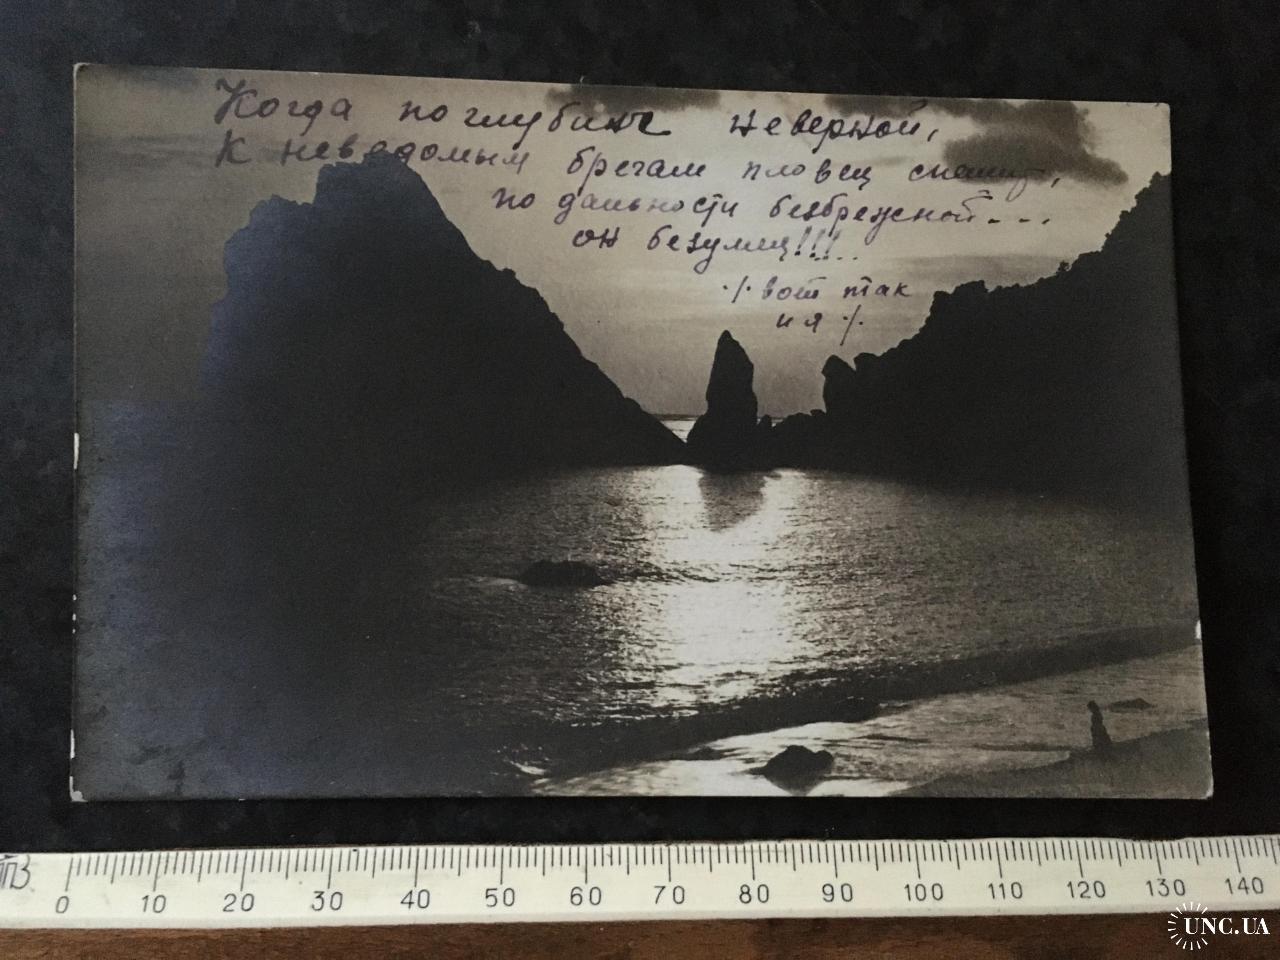 Когда по глубине неверной,
К неведомым брегам пловец спешит,
по дальности безбрежной...
он безумец!!!..
·/· вот так
и я ·/·
ПЗ
0 10 20 30 40 50 60 70 80 90 100 110 120 130 140
UNC.UA